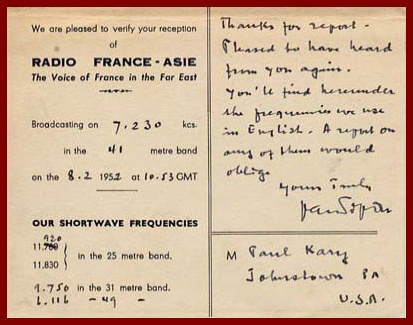 We are pleased to verify your reception
of
RADIO FRANCE - ASIE
The Voice of France in the Far East
Broadcasting on 7.230 kcs.
in the 41 metre band
on the 8.2 1952 at 10.53 GMT
OUR SHORTWAVE FREQUENCIES
920
11,700
11,830
in the 25 metre band.
9.750 in the 31 metre band.
6.116 - 49 -
Thanks for report.
Pleased to have heard
from you again.
You'll find hereunder
the frequencies we use
in English. A report on
any of them would
oblige
Yours Truly
M Paul Kary
Johnstown PA
U.S.A.